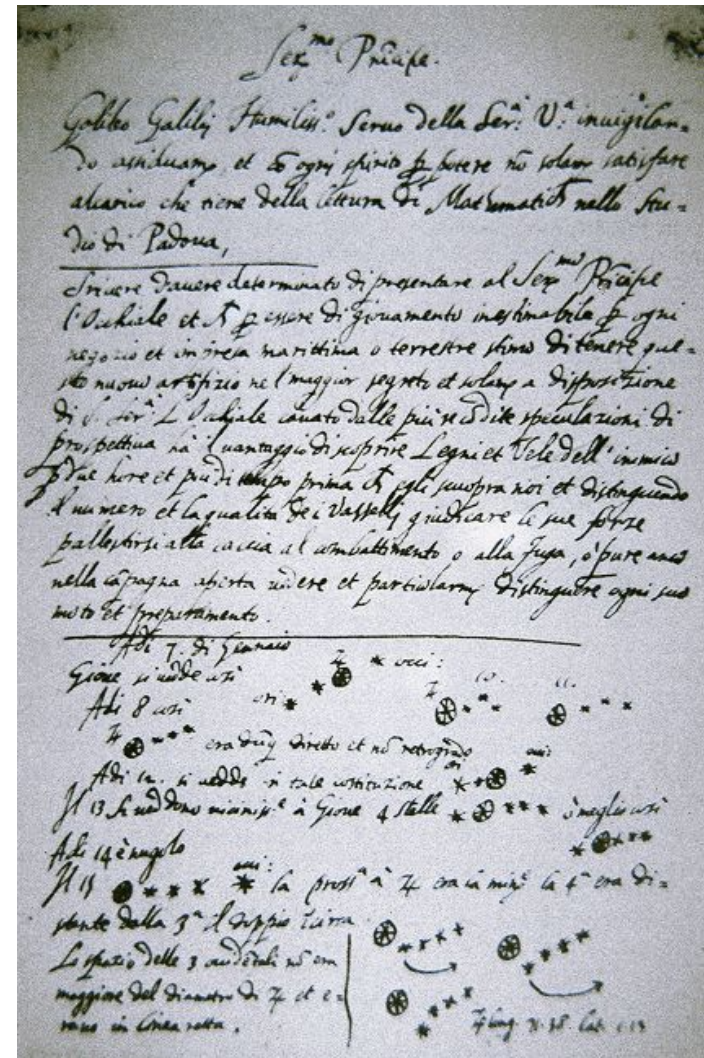 Ser.mo Principe.
Galileo Galilei Humiliss.o Servo della Ser.a V.a invigilan=
do assiduam.te et co ogni spirito p potere no solam.te satisfare
alcarico che tiene della lettura di Mathematich nello Stu=
dio di Padova,
Scrivere davere determinato di presentare al Ser.mo Principe
l'Occhiale et p essere di giovamento inestimabile p ogni
negozio et impresa marittima o terrestre stimo di tenere que=
sto nuovo artifizio nel maggior segreto et solam.te a disposizione
di S. Ser.a L'Occhiale cavato dalle piu recodite speculazioni di
prospettiva ha il vantaggio di scoprire Legni et Vele dell' inimico
p due hore et piu di tempo prima ch egli scuopra noi et distinguendo
il numero et la qualita de i Vasselli giudicare le sue forze
pallestirsi alla caccia al combattimento o alla fuga, o pure anco
nella capagna aperta vedere et particolarm.te distinguere ogni suo
moto et preparamento.
Adi 7. di Gennaio
Gione si vedde cosi ♃ occi:
Adi 8 cosi ori ♃ 10. 11.
♃ era duq diretto et no retrogrado
Adi 12. si vedde in tale costituzione ori occi
Il 13 si veddono vicinis.e à Giove 4 stelle ò meglio cosi
Adi 14 è nugolo
Il 15 occi: la pross.a à ♃ era la min.e la 4.a era di=
stante dalla 3.a il doppio Circa
Lo spazio delle 3 occidetali no era
maggiore del diametro di ♃ et e=
rano in linea retta.
♃ long. 71.38 lat. 1.13